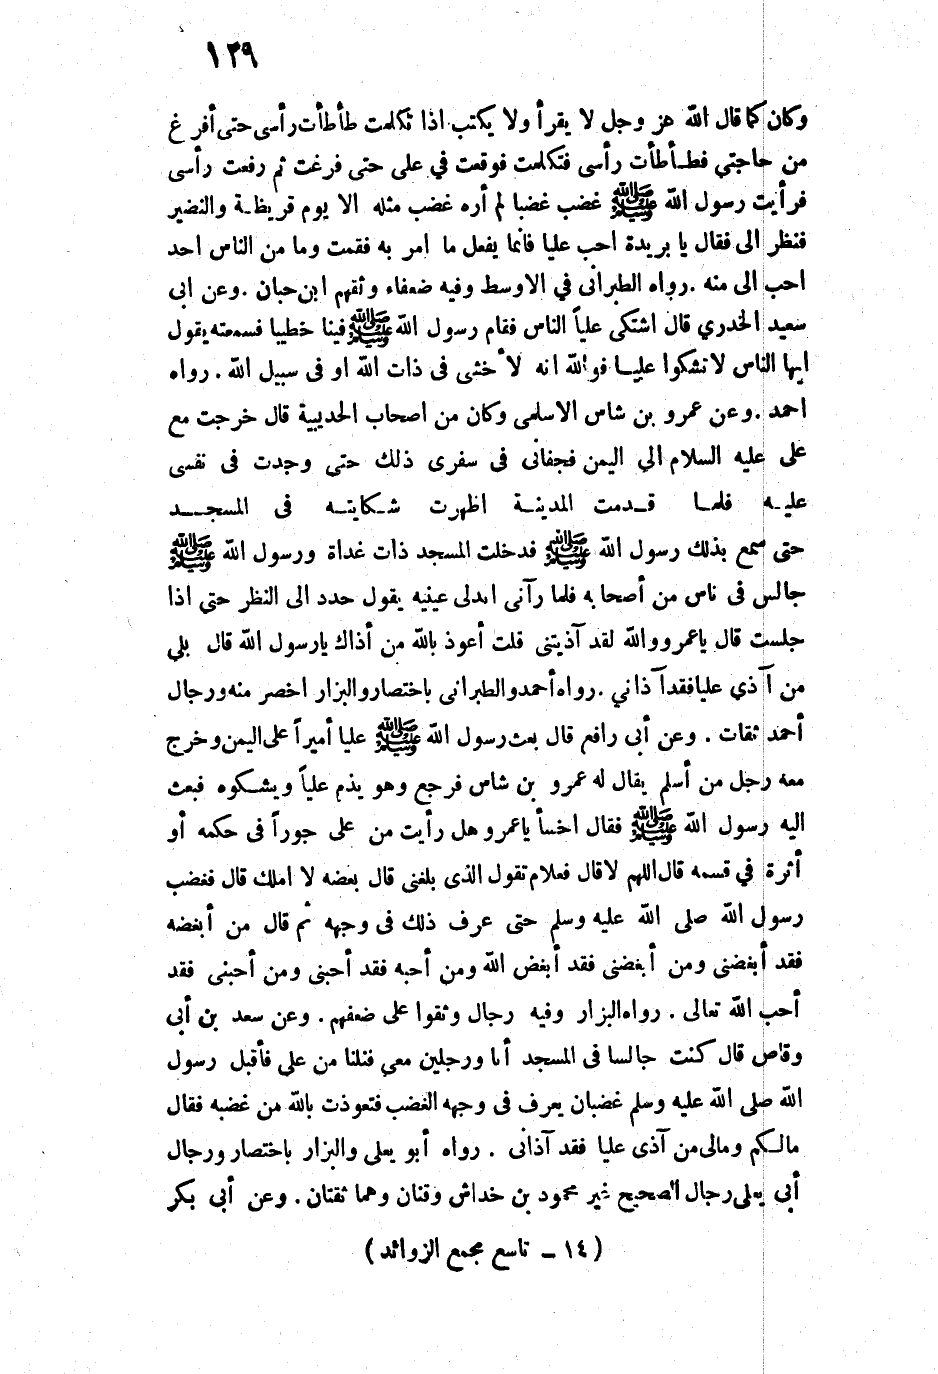 ١٢٩
وكان كما قال الله عز وجل لا يقرأ ولا يكتب اذا تكلمت طأطأت رأسى حتى أفرغ
من حاجتي فطـأطأت رأسى فتكلمت فوقعت في على حتى فرغت ثم رفعت رأسى
فرأيت رسول الله ﷺ غضب غضبا لم أره غضب مثله الا يوم قريظـة والنضير
فنظر الى فقال يا بريدة احب عليا فانما يفعل ما امر به فقمت وما من الناس احد
احب الى منه . رواه الطبرانى في الاوسط وفيه ضعفاء وثقهم ابن حبان . وعن ابى
سعيد الخدري قال اشتكى علياً الناس فقام رسول الله ﷺ فينا خطيبا فسمعته يقول
ايها الناس لا تشكوا عليـا فوالله انه لأخشى فى ذات الله او فى سبيل الله . رواه
احمد . وعن عمرو بن شاس الاسلمى وكان من اصحاب الحديبية قال خرجت مع
على عليه السلام الى اليمن فجفانى فى سفرى ذلك حتى وجدت فى نفسى
عليـه فلمـا قـدمت المدينـة اظهرت شـكايتـه فى المسجـــد
حتى سمع بذلك رسول الله ﷺ فدخلت المسجد ذات غداة ورسول الله ﷺ
جالس فى ناس من أصحابه فلما رآنى ابدلى عينيه يقول حدد الى النظر حتى اذا
جلست قال ياعمرو والله لقد آذيتنى قلت أعوذ بالله من أذاك يارسول الله قال بلي
من آذي عليا فقد آذاني . رواه أحمد والطبرانى باختصار والبزار اخصر منه ورجال
أحمد ثقات . وعن أبى رافع قال بعث رسول الله ﷺ عليا أميراً على اليمن وخرج
معه رجل من أسلم يقال له عمرو بن شاس فرجع وهو يذم علياً ويشـكوه فبعث
اليه رسول الله ﷺ فقال اخسأ ياعمرو هل رأيت من على جوراً فى حكمه أو
أثرة في قسمه قال اللهم لا قال فعلام تقول الذى بلغنى قال بعضه لا املك قال فغضب
رسول الله صلى الله عليه وسلم حتى عرف ذلك فى وجهه ثم قال من أبغضه
فقد أبغضنى ومن أبغضنى فقد أبغض الله ومن أحبه فقد أحبنى ومن أحبنى فقد
أحب الله تعالى . رواه البزار وفيه رجال وثقوا على ضعفهم . وعن سعد بن أبى
وقاص قال كنت جالسا فى المسجد أنا ورجلين معي فنلنا من علي فأقبل رسول
الله صلى الله عليه وسلم غضبان يعرف فى وجهه الغضب فتعوذت بالله من غضبه فقال
مالـكم ومالى من آذى عليا فقد آذانى . رواه أبو يعلى والبزار باختصار ورجال
أبي يعلى رجال الصحيح غير محمود بن خداش وقنان وهما ثقتان . وعن أبى بكر
( ١٤ ـ تاسع مجمع الزوائد )